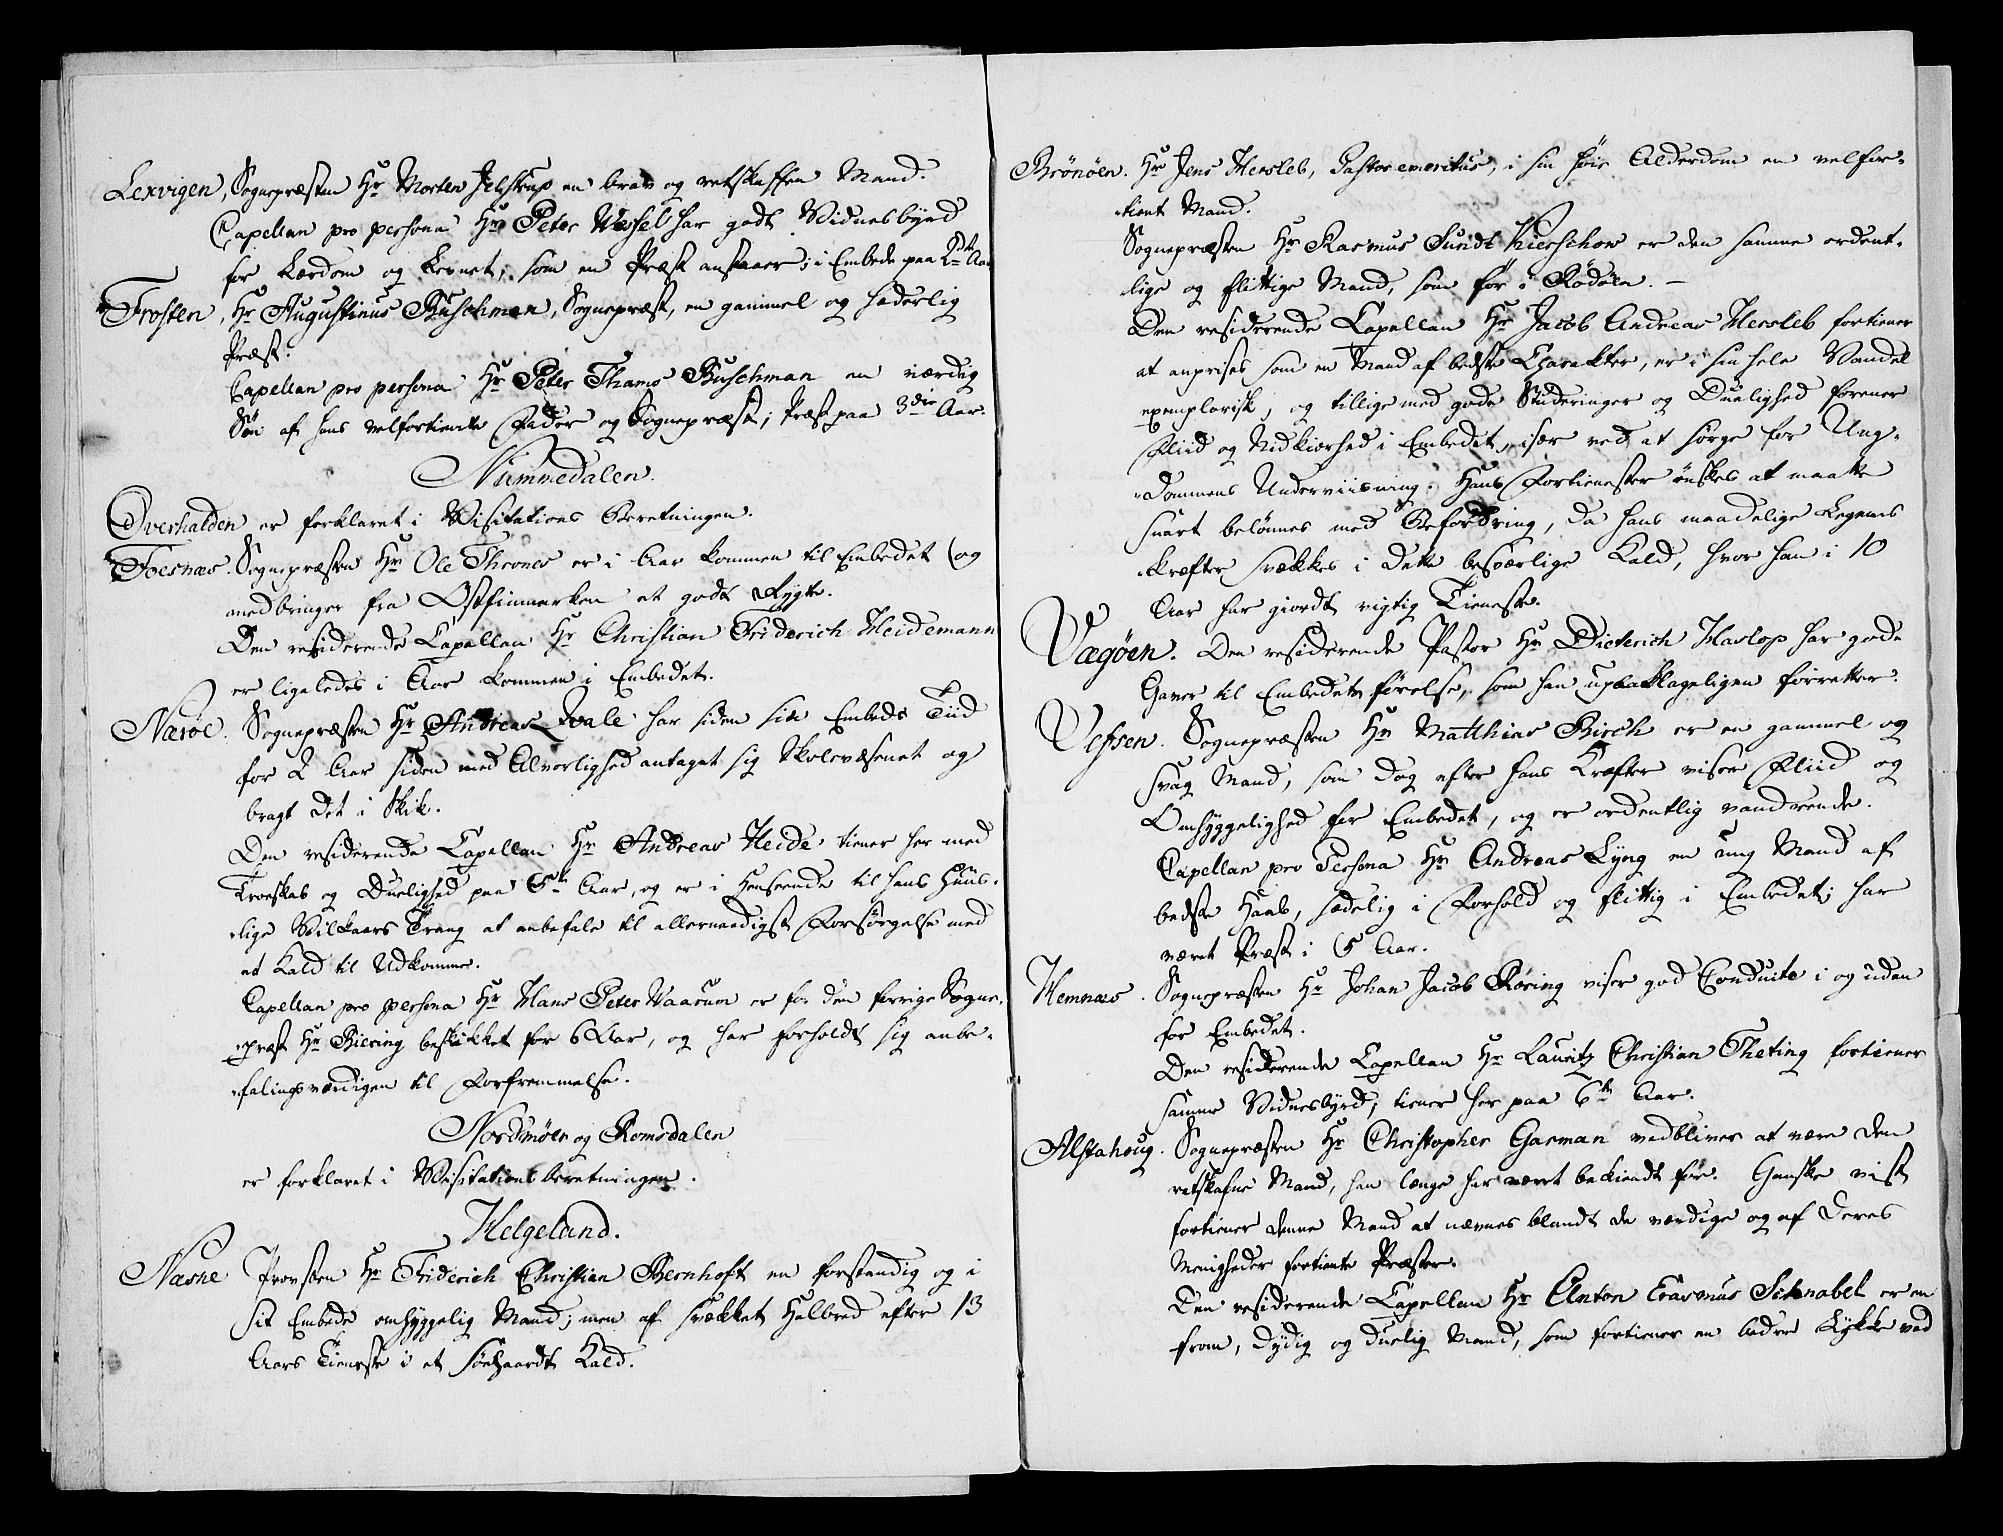 Lexvigen, Sognepræsten Hr Morten Jelstrup en brav og retskaffen Mand.
Capellan pro persona Hr Peter Wessel har godt Vidnesbyrd
for Lærdom og Levnet, som en Præst anstaaer; i Embede paa 2det Aar
Frosten, Hr Augustinus Buschman, Sognepræst, en gammel og hæderlig
Præst.
Capellan pro persona Hr Peter Thams Buschman en værdig
Søn af hans velfortiente Fader og Sognepræst; Præst paa 3die Aar.
Nummedalen.
Overhalden er forklaret i Visitations Beretningen.
Foesnæs. Sognepræsten Hr Ole Thrones er i Aar kommen til Embedet og
medbringer fra Østfinmarken et godt Rygte.
Den residerende Capellan Hr Christian Friderich Heidemann
er ligeledes i Aar kommen i Embedet.
Nærøe. Sognepræsten Hr Andreas Qvale har siden sin Embeds Tiid
for 2 Aar siden med Alvorlighed antaget sig Skolevæsenet og
bragt det i Skik.
Den residerende Capellan Hr Andreas Heide tiener her med
Troeskab og Duelighed paa 5te Aar, og er i Henseende til hans Huus-
-lige Vilkaars Trang at anbefale til allernaadigst Forsørgelse med
et Kald til Udkomme.
Capellan pro persona Hr Hans Peter Vaarum er for den forrige Sogne-
-præst Hr Biering beskikket for 6 Aar, og har forholdt sig anbe-
-falingsværdigen til Forfremmelse.
Nordmøer og Romsdalen
er forklaret i Visitationsberetningen.
Helgeland.
Næsne Provsten Hr Friderich Christian Bernhoft en forstandig og i
sit Embede omhyggelig Mand; men af svækket Helbred efter 13
Aars Tieneste i et Kald.
Brønøen. Hr Jens Hersleb, Pastor emeritus, i sin høie Alderdom en velfor-
-tient Mand.
Sognepræsten Hr Rasmus Sundt Kierschow er den samme ordent-
-lige og flittige Mand, som før i Rødøen. -
Den residerende Capellan Hr Jacob Andreas Hersleb fortiener
at anprises som en Mand af bedste Charakter, er i sin hele Vandel
exemplarisk, og tillige med gode Studeringer og Duelighed forener
Fliid og Nidkierhed i Embedet, især ved at sørge for Ung-
-dommens Underviisning. Hans Fortienester ønskes at maatte
snart belønnes med Befordring, da hans maadelige Legems
-kræfter svækkes i dette besværlige Kald, hvor han i 10
Aar har giordt vigtig Tieneste.
Vægøen. Den residerende Pastor Hr Dieterich Haslop har gode
Gaver til Embedets førelse, som han upaaklageligen forretter.
Vefsen. Sognepræsten Hr Matthias Birch er en gammel og
svag Mand, som dog efter hans Kræfter viser Fliid og
Omhyggelighed for Embedet, og er ordentlig vandrende.
Capellan pro Persona Hr Andreas Lyng en ung Mand af
bedste Haab, sædelig i Forhold og flittig i Embedet; har
været Præst i 5 Aar.
Hemnæs. Sognepræsten Hr Johan Jacob Røring viser god Conduite i og uden
for Embedet.
Den residerende Capellan Hr Lauritz Christian Theting fortiener
samme Vidnesbyrd; tiener her paa 6te Aar.
Alstahoug. Sognepræsten Hr Christopher Garman vedbliver at være den
retskafne Mand, han længe har været bekiendt for. Ganske vist
fortiener denne Mand at nævnes blandt de værdige og af deres
Menigheder fortiente Præster.
Den residerende Capellan Hr Anton Erasmus Schnabel er en
from, dydig og duelig Mand, som fortiener en bedre Lykke ved